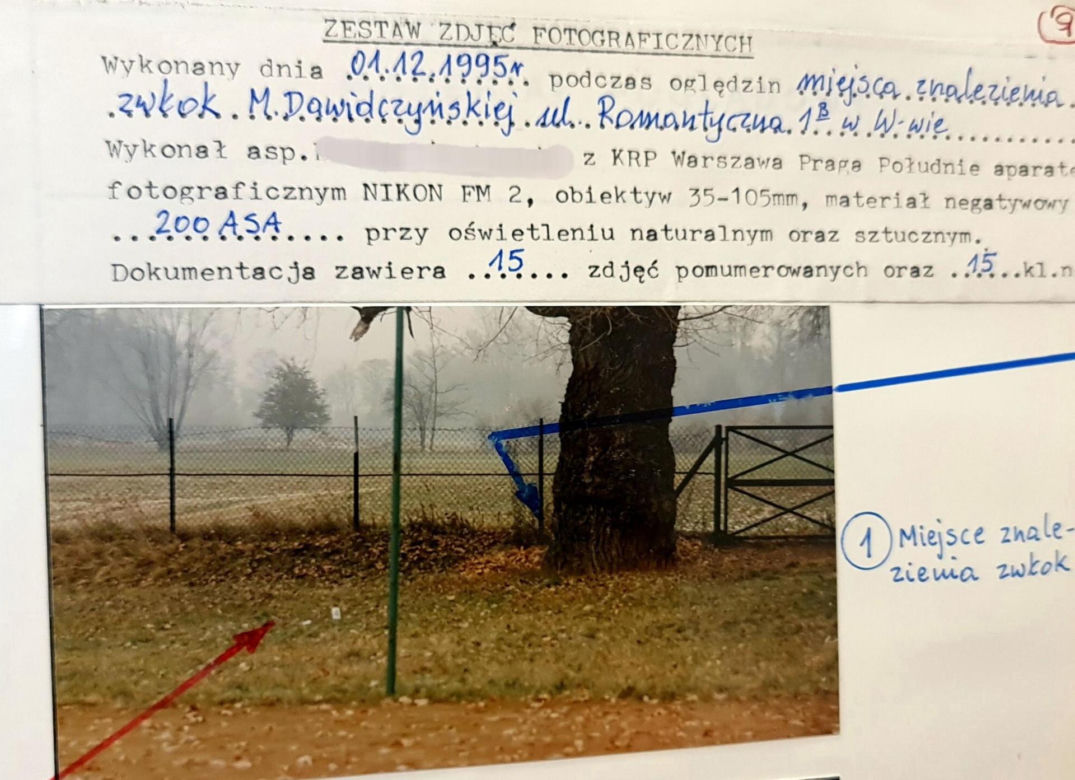 9
ZESTAW ZDJĘĆ FOTOGRAFICZNYCH
Wykonany dnia 01.12.1995r. podczas oględzin miejsca znalezienia
zwłok M.Dawidczyńskiej ul. Romantyczna 1B w W-wie
Wykonał asp. z KRP Warszawa Praga Południe aparat
fotograficznym NIKON FM 2, obiektyw 35-105mm, materiał negatywowy
200 ASA przy oświetleniu naturalnym oraz sztucznym.
Dokumentacja zawiera ..15.... zdjęć pomumerowanych oraz ..15...kl.n
1 Miejsce znale-
zienia zwłok